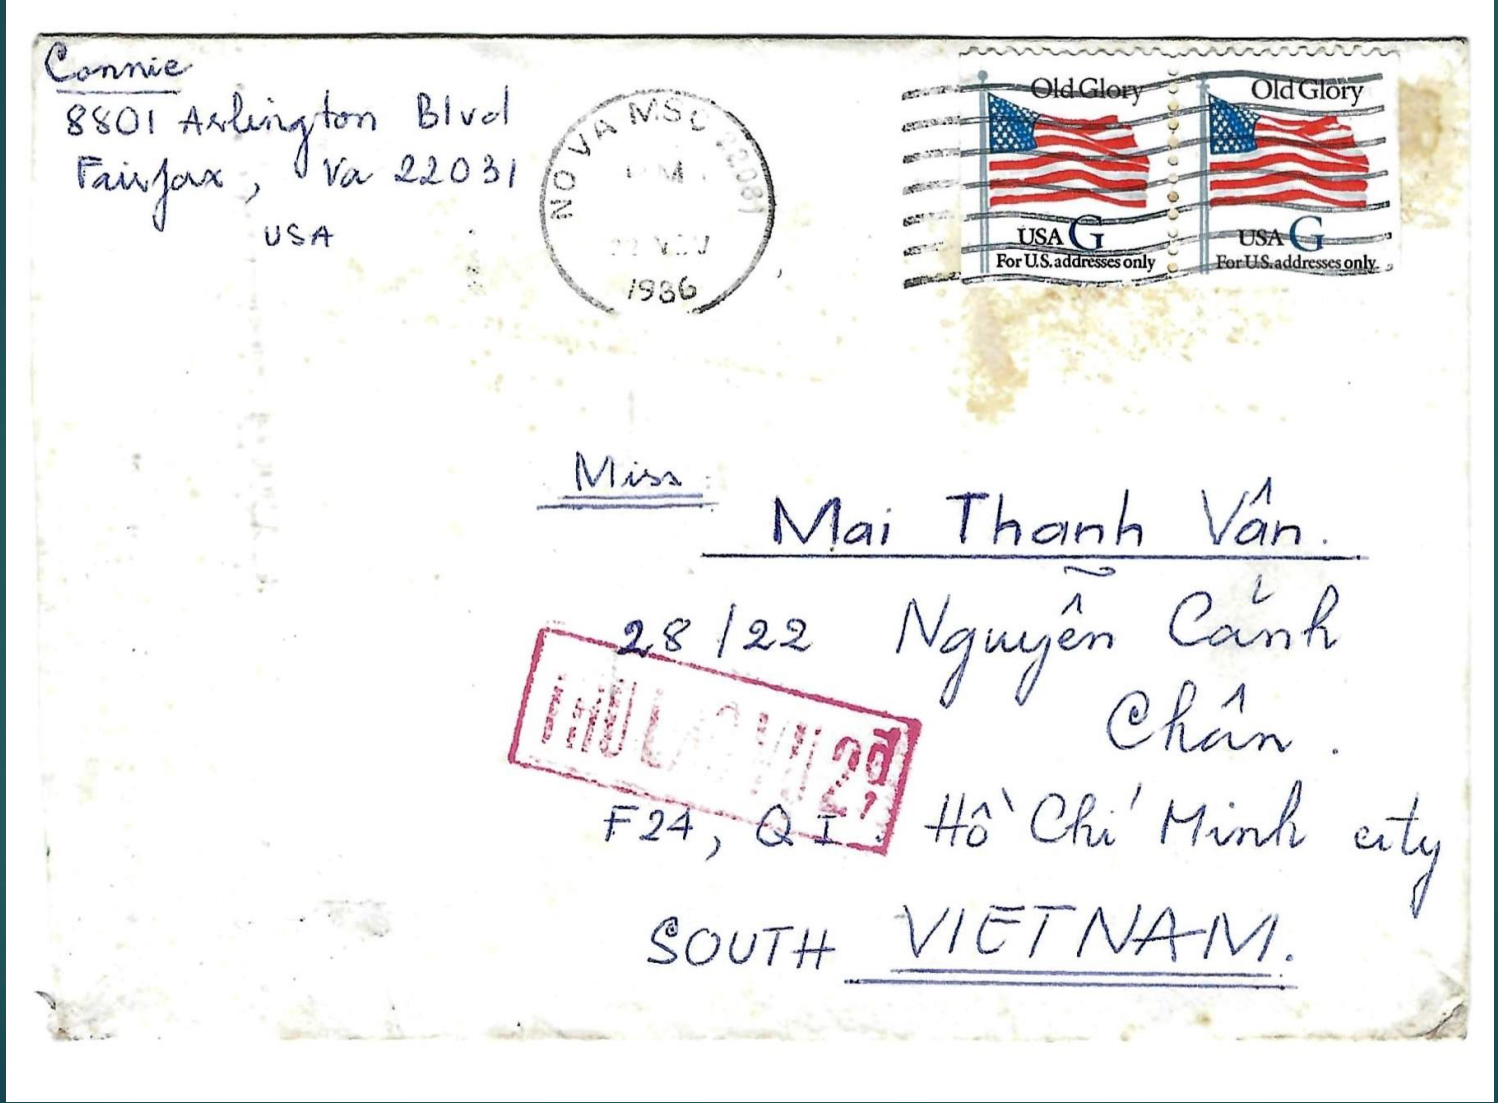 Connie
8801 Arlington Blvd
Fairfax, Va 22031
USA
NO VA MSC 22081
PM
22 NOV
1996
Old Glory
USA G
For U.S. addresses only
Old Glory
USA G
For U.S. addresses only
Miss
Mai Thanh Vân.
28/22 Nguyễn Cảnh
Chân.
THÙ LAO VỤ 2đ
F24, Q I. Hồ Chí Minh city
SOUTH VIETNAM.